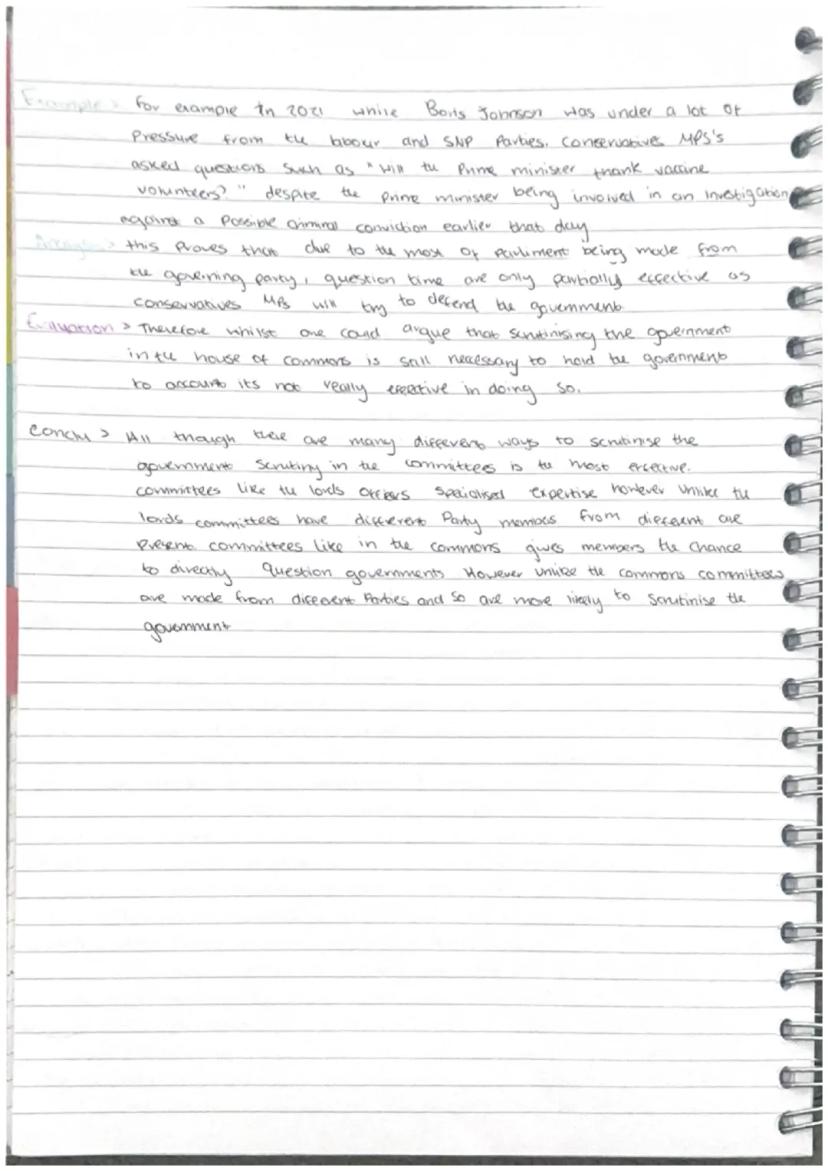 Example > For example In 2021 while Boris Johnson was under a lot of
Pressure from the labour and SNP Parties. Conservatives MPS's
asked questions such as "will the Prime minister thank vaccine
volunteers?" despite the prime minister being involved in an Investigation
against a possible criminal conviction earlier that day
Analysis > this proves that due to the most of parliment being made from
the governing party, question time are only partially effective as
conservatives MPs will try to defend the government
Evaluation > Therefore whilst one could argue that scrutinising the government
in the house of commons is still necessary to hold the government
to account its not really effective in doing so.
Conclu > All though there are many different ways to scrutinise the
government scrutiny in the committees is the most effective.
committees like the lords offers specialised expertise however unlike the
lords committees have different Party members from different are
Present committees like in the commons gives members the chance
to directly question governments However unlike the commons committees
are made from different Parties and so are more likely to scrutinise the
government